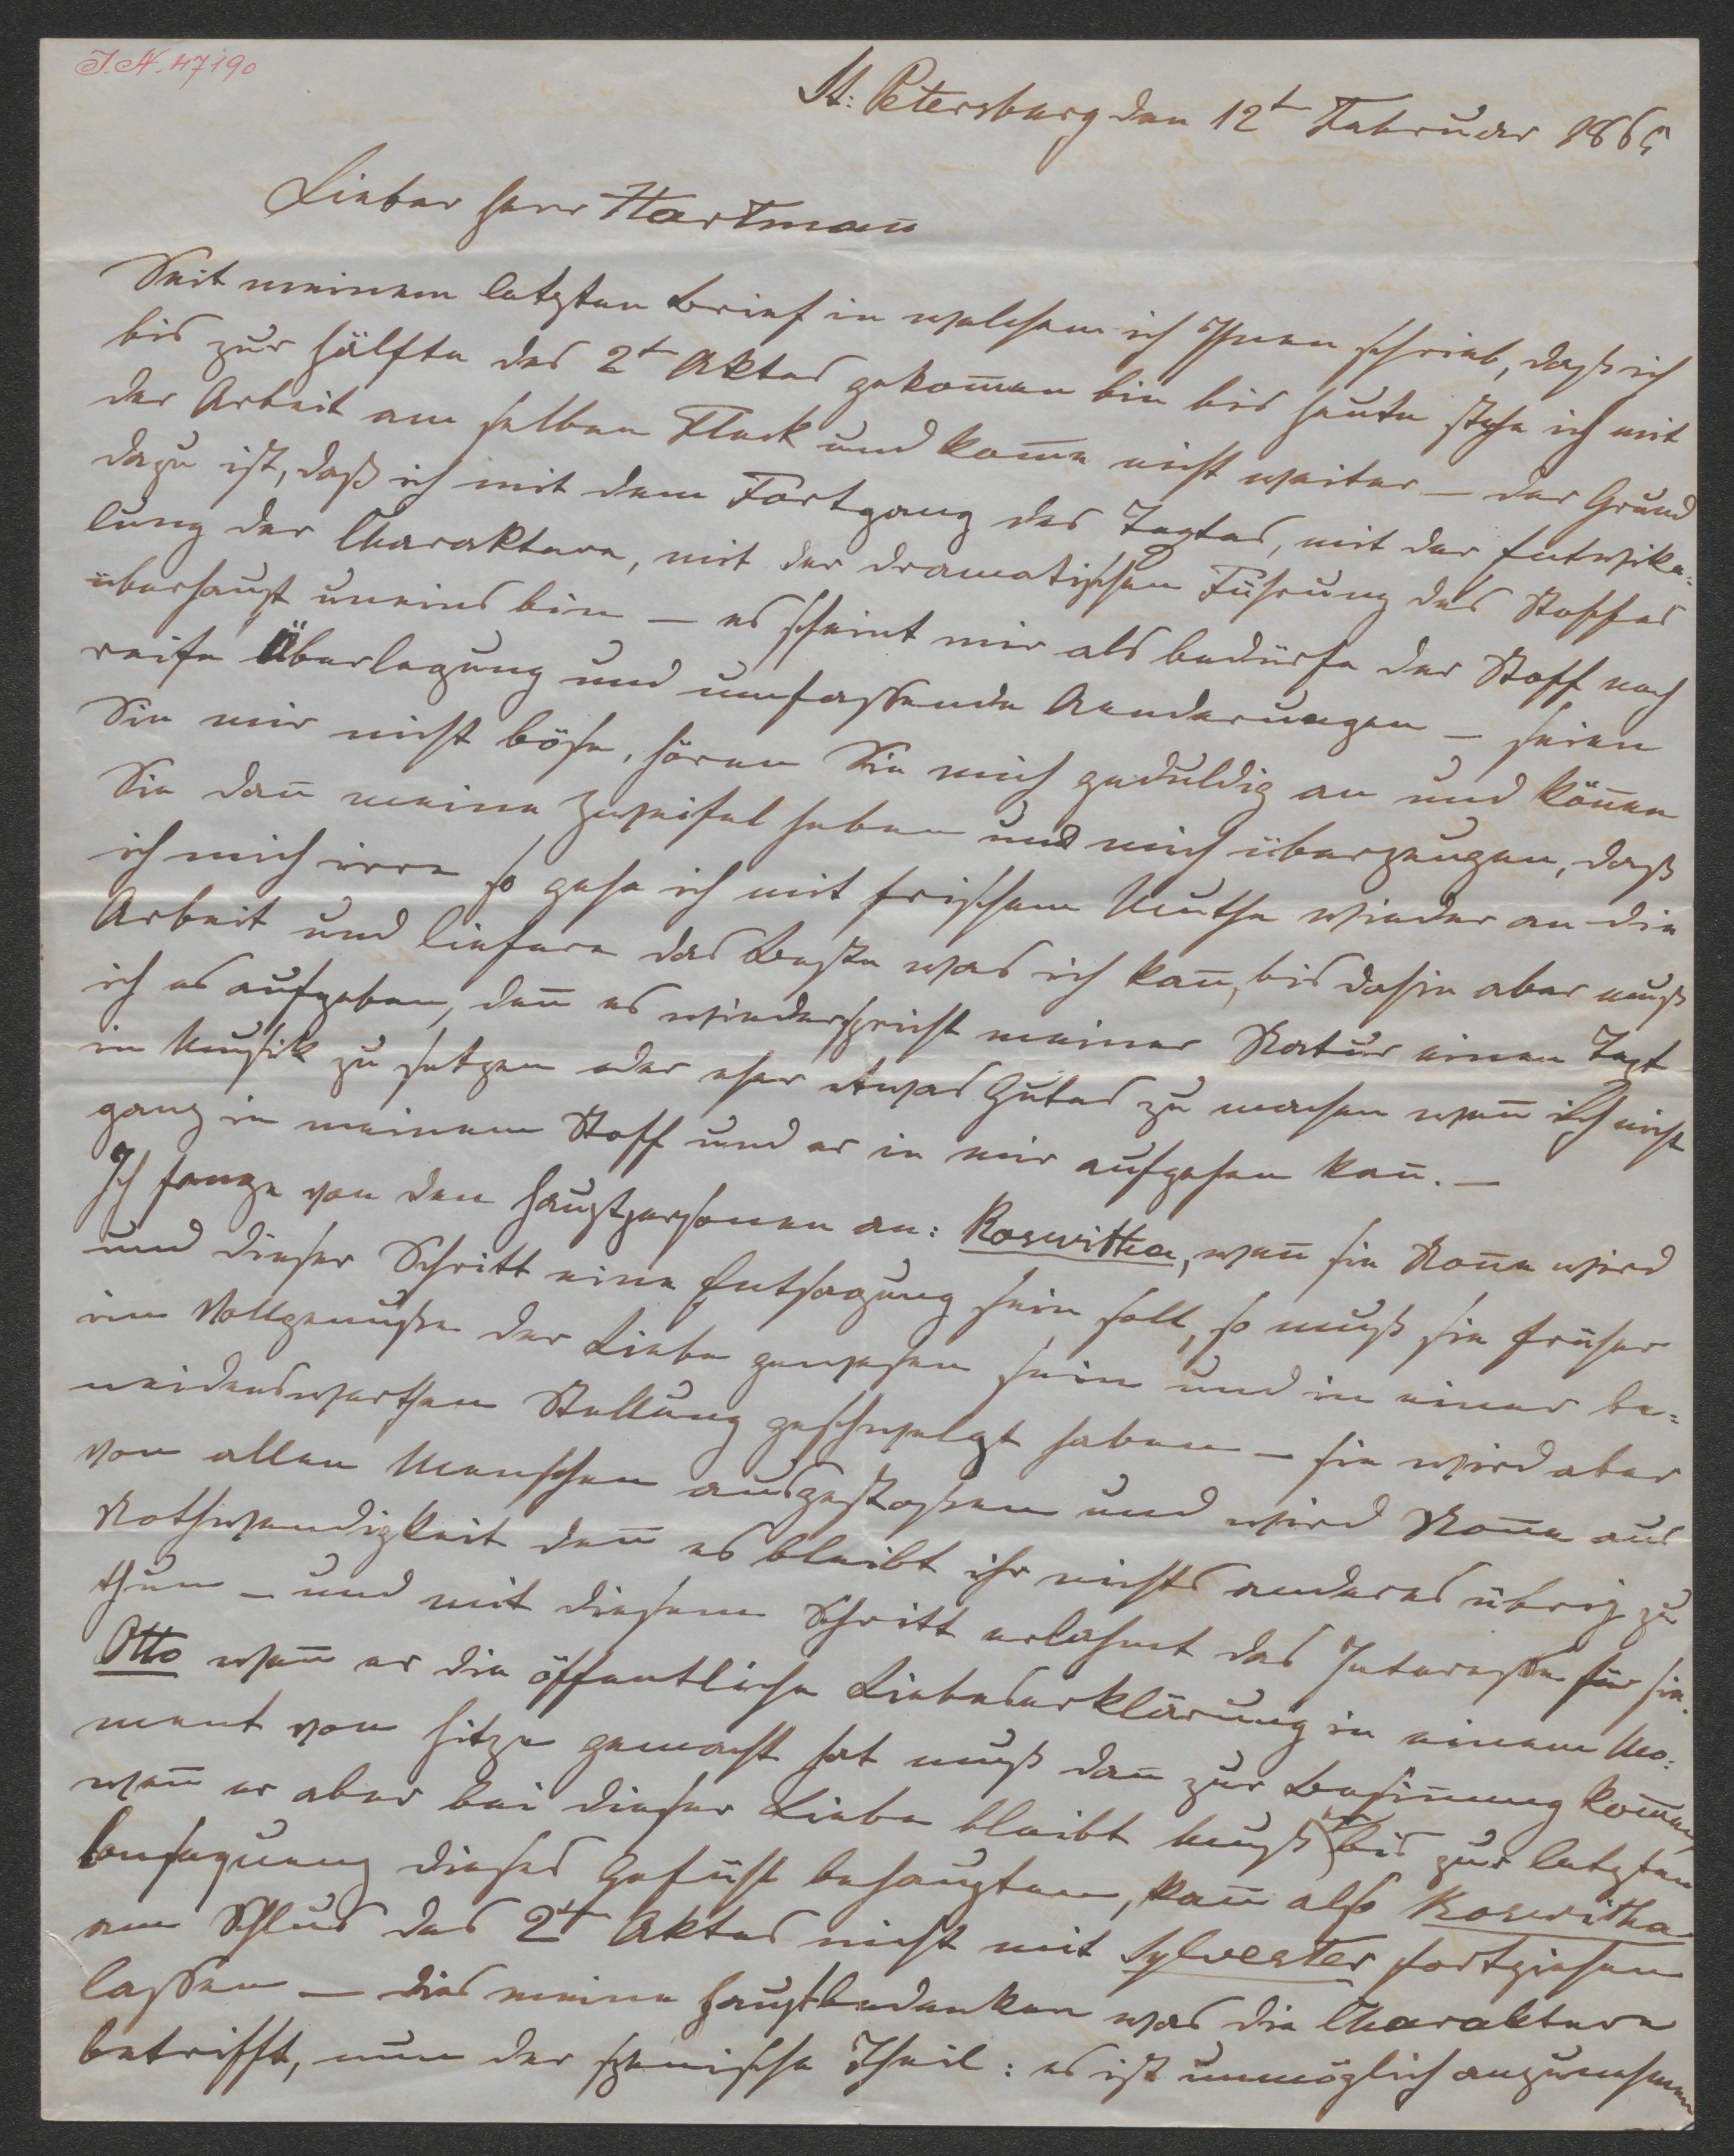 I.N. 47190
St: Petersburg den 12t Februar 1865
Lieber Herr Hartman̄
Seit meinem letzten Brief in welchem ich Ihnen schrieb, daß ich
bis zur Hälfte des 2t Aktes gekom̄en bin bis heute stehe ich mit
der Arbeit am selben Fleck und kom̄e nicht weiter – der Grund
dazu ist, daß ich mit dem Fortgang des Textes, mit der Entwike-
lung der Charaktere, mit der dramatischen Führung des Stoffes
überhaupt uneins bin – es scheint mir als bedürfe der Stoff noch
reife Überlegung und umfassende Aenderungen – seien
Sie mir nicht böse, hören Sie mich geduldig an und kön̄en
Sie dan̄ meine Zweifel heben und mich überzeugen, daß
ich mich irre so gehe ich mit frischem Muthe wieder an die
Arbeit und liefere das Beste was ich kan̄, bis dahin aber muß
ich es aufgeben, den̄ es wiederspricht meiner Natur einen Text
in Musik zu setzen oder eher etwas Gutes zu machen wen̄ ich nicht
ganz in meinem Stoff und er in mir aufgehen kan̄. –
Ich fange von den Hauptpersonen an: Roswitha, wen̄ sie Non̄e wird
und dieser Schritt eine Entsagung sein soll, so muß sie früher
im Vollgenuße der Liebe gewesen sein und in einer be-
neidenswerthen Stellung geschwelgt haben – sie wird aber
von allen Menschen ausgestoßen und wird Non̄e aus
Nothwendigkeit den̄ es bleibt ihr nichts anderes übrig zu
thun – und mit diesem Schritt erlahmt das Interesse für sie.
Otto wen̄ er die öffentliche Liebeserklärung in einem Mo-
ment von Hitze gemacht hat muß dan̄ zur Besin̄ung kom̄en,
wen̄ er aber bei dieser Liebe bleibt muß er bis zur letzten
Consequenz dieses Gefühl behaupten, kan̄ also Roswitha
am Schlus des 2t Aktes nicht mit Sylvester fortziehen
lassen – dies meine Hauptbedenken was die Charaktere
betrifft, nun der szenische Theil: es ist unmöglich anzunehmen